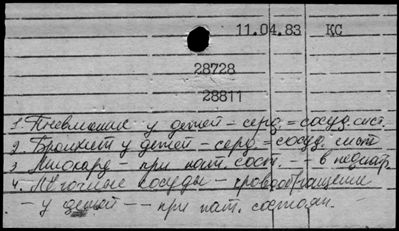 11.04.83 КС
28728
28811
1. Пневмония у детей – серд. = сосуд. сист.
2. Бронхит у детей – серд. = сосуд. сист
3 Миокард – при пат. сост. – – в педиатр.
4. Лёгочные сосуды – кровообращение
– у детей – – при пат. состоян.